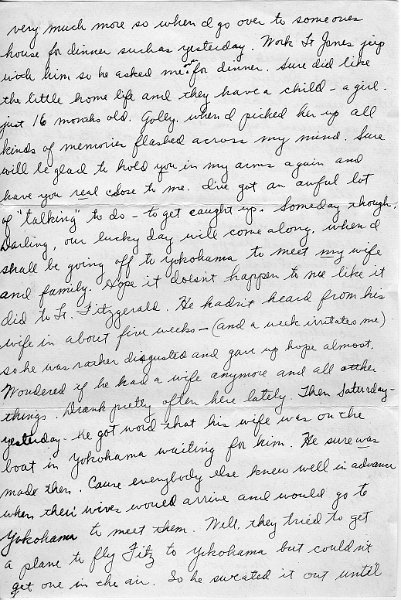 very much more so when I go over to someones
house for dinner such as yesterday. Work Lt Jones jeep
with him so he asked me over for dinner. Sure did like
the little home life and they have a child - a girl.
just 16 months old. Golly, when I picked her up all
kinds of memories flashed across my mind. Sure
will be glad to hold you in my arms again and
have you real close to me. I've got an awful lot
of "talking" to do - to get caught up. Someday though,
Darling, our lucky day will come along, when I
shall be going off to Yokohama to meet my wife
and family. Hope it doesn't happen to me like it
did to Lt. Fitzgerald. He hadn't heard from his
wife in about five weeks - (and a week irritates me)
so he was rather disgusted and gave up hope almost.
Wondered if he had a wife anymore and all other
things. Drank pretty often here lately. Then Saturday -
yesterday - he got word that his wife was on the
boat in Yokohama waiting for him. He sure was
mad then. Cause everybody else knew well in advance
when their wives would arrive and would go to
Yokohama to meet them. Well, they tried to get
a plane to fly Fitz to Yokohama but couldn't
get one in the air. So he sweated it out until